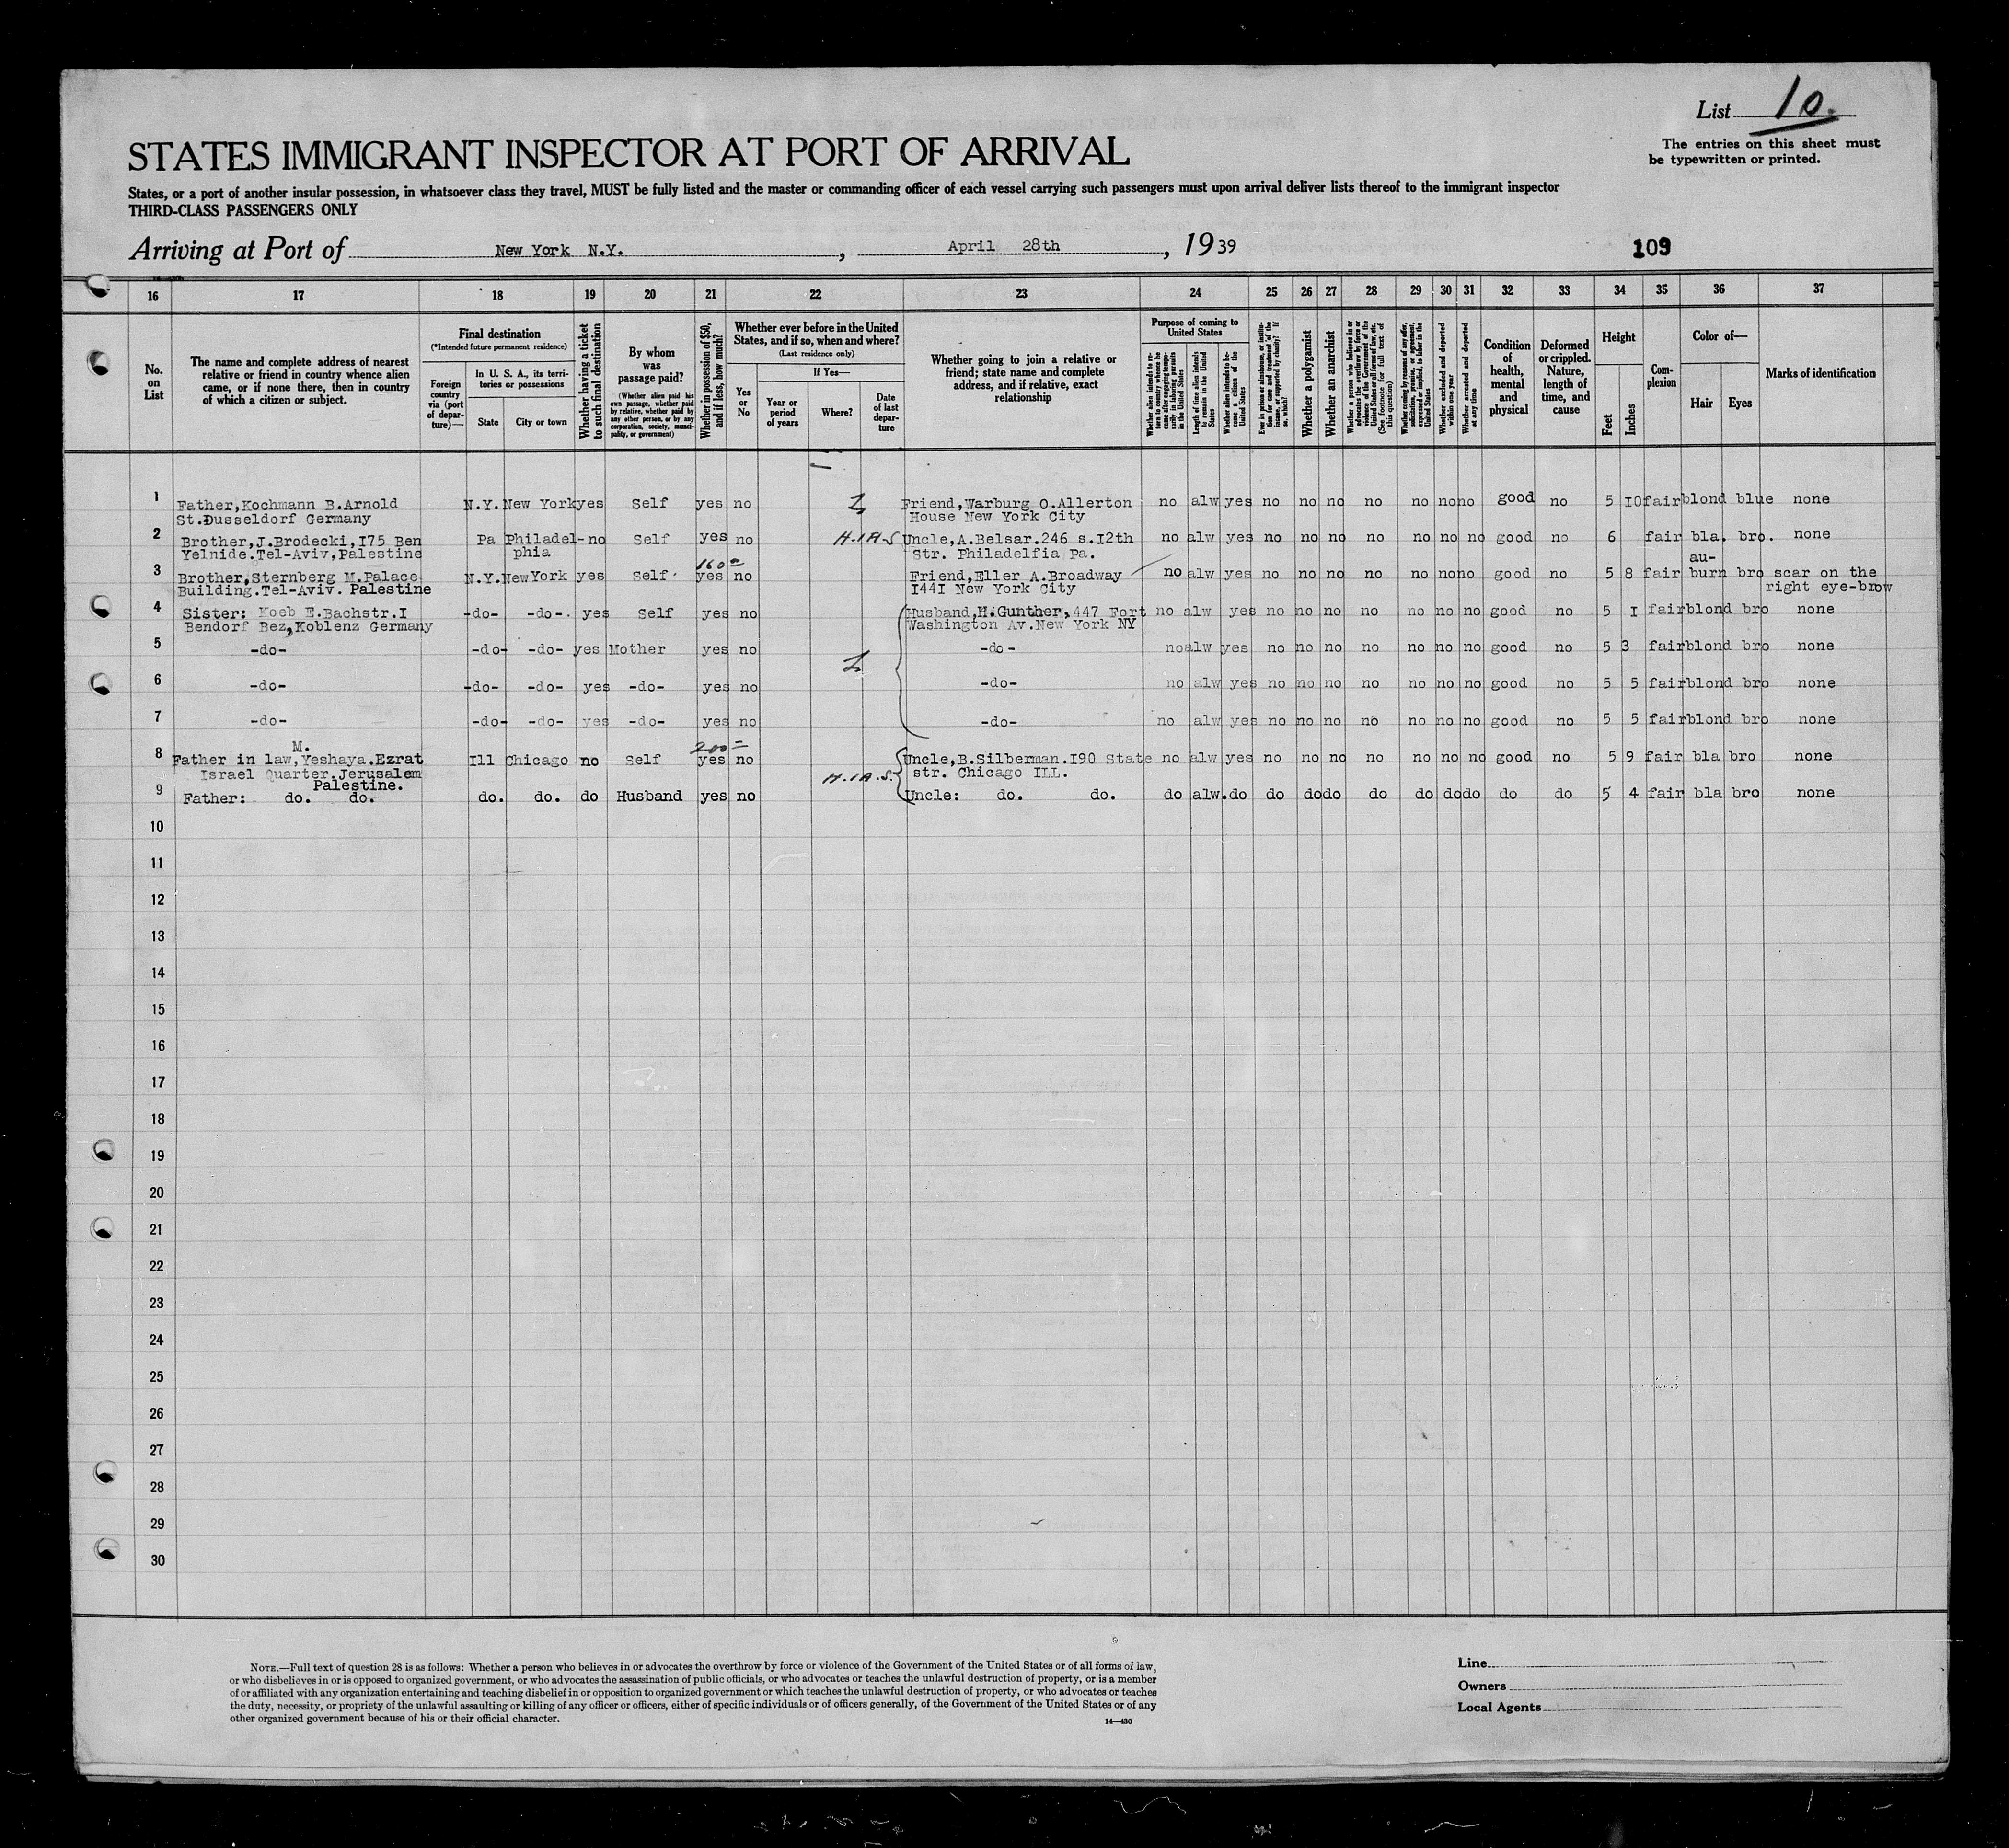 List 10.
The entries on this sheet must
be typewritten or printed.
STATES IMMIGRANT INSPECTOR AT PORT OF ARRIVAL
States, or a port of another insular possession, in whatsoever class they travel, MUST be fully listed and the master or commanding officer of each vessel carrying such passengers must upon arrival deliver lists thereof to the immigrant inspector
THIRD-CLASS PASSENGERS ONLY
Arriving at Port of New York N.Y. , April 28th , 1939
109
16 17 18 19 20 21 22 23 24 25 26 27 28 29 30 31 32 33 34 35 36 37
No. on List
The name and complete address of nearest
relative or friend in country whence alien
came, or if none there, then in country
of which a citizen or subject.
Final destination
(*Intended future permanent residence)
Foreign
country
via (port
of depar-
ture)—
In U. S. A., its terri-
tories or possessions
State
City or town
Whether having a ticket
to such final destination
By whom
was
passage paid?
(Whether alien paid his
own passage, whether paid
by relative, whether paid by
any other person, or by any
corporation, society, munici-
pality, or government)
Whether in possession of $50,
and if less, how much?
Whether ever before in the United
States, and if so, when and where?
(Last residence only)
Yes
or
No
If Yes—
Year or
period
of years
Where?
Date
of last
depar-
ture
Whether going to join a relative or
friend; state name and complete
address, and if relative, exact
relationship
Purpose of coming to
United States
Length of time alien intends
to remain in the United
States
Whether alien intends to be-
come a citizen of the
United States
Whether a polygamist
Whether an anarchist
Whether excluded and deported
within one year
Whether arrested and deported
at any time
Condition
of
health,
mental
and
physical
Deformed
or crippled.
Nature,
length of
time, and
cause
Height
Feet
Inches
Com-
plexion
Color of—
Hair
Eyes
Marks of identification
1 Father,Kochmann B.Arnold N.Y. New York yes Self yes no Friend,Warburg O.Allerton no alw yes no no no no no no no good no 5 I0 fair blond blue none
St.Dusseldorf Germany House New York City
2 Brother,J.Brodecki,I75 Ben Pa Philadel- no Self yes no H.I.A.S Uncle,A.Belsar.246 s.I2th no alw yes no no no no no no no good no 6 fair bla. bro. none
Yelnide.Tel-Aviv,Palestine phia Str. Philadelfia Pa.
160= au-
3 Brother,Sternberg M.Palace N.Y. New York yes Self yes no Friend,Eller A.Broadway no alw yes no no no no no no no good no 5 8 fair burn bro scar on the
Building.Tel-Aviv. Palestine I44I New York City right eye-brow
4 Sister: Koeb E.Bachstr.I -do- -do-. yes Self yes no Husband,H.Gunther,447 Fort no alw yes no no no no no no no good no 5 I fair blond bro none
Bendorf Bez,Koblenz Germany Washington Av.New York NY
5 -do- -do- -do- yes Mother yes no -do- no alw yes no no no no no no no good no 5 3 fair blond bro none
6 -do- -do- -do- yes -do- yes no -do- no alw yes no no no no no no no good no 5 5 fair blond bro none
7 -do- -do- -do- yes -do- yes no -do- no alw yes no no no no no no no good no 5 5 fair blond bro none
M. 200=
8 Father in law,Yeshaya.Ezrat Ill Chicago no Self yes no Uncle,B.Silberman.I90 State no alw yes no no no no no no no good no 5 9 fair bla bro none
Israel Quarter.Jerusalem H.I.A.S. str. Chicago ILL.
Palestine.
9 Father: do. do. do. do. do Husband yes no Uncle: do. do. do alw. do do do do do do do do do do 5 4 fair bla bro none
10
11
12
13
14
15
16
17
18
19
20
21
22
23
24
25
26
27
28
29
30
NOTE.—Full text of question 28 is as follows: Whether a person who believes in or advocates the overthrow by force or violence of the Government of the United States or of all forms of law,
or who disbelieves in or is opposed to organized government, or who advocates the assassination of public officials, or who advocates or teaches the unlawful destruction of property, or is a member
of or affiliated with any organization entertaining and teaching disbelief in or opposition to organized government or which teaches the unlawful destruction of property, or who advocates or teaches
the duty, necessity, or propriety of the unlawful assaulting or killing of any officer or officers, either of specific individuals or of officers generally, of the Government of the United States or of any
other organized government because of his or their official character.
14—430
Line
Owners
Local Agents